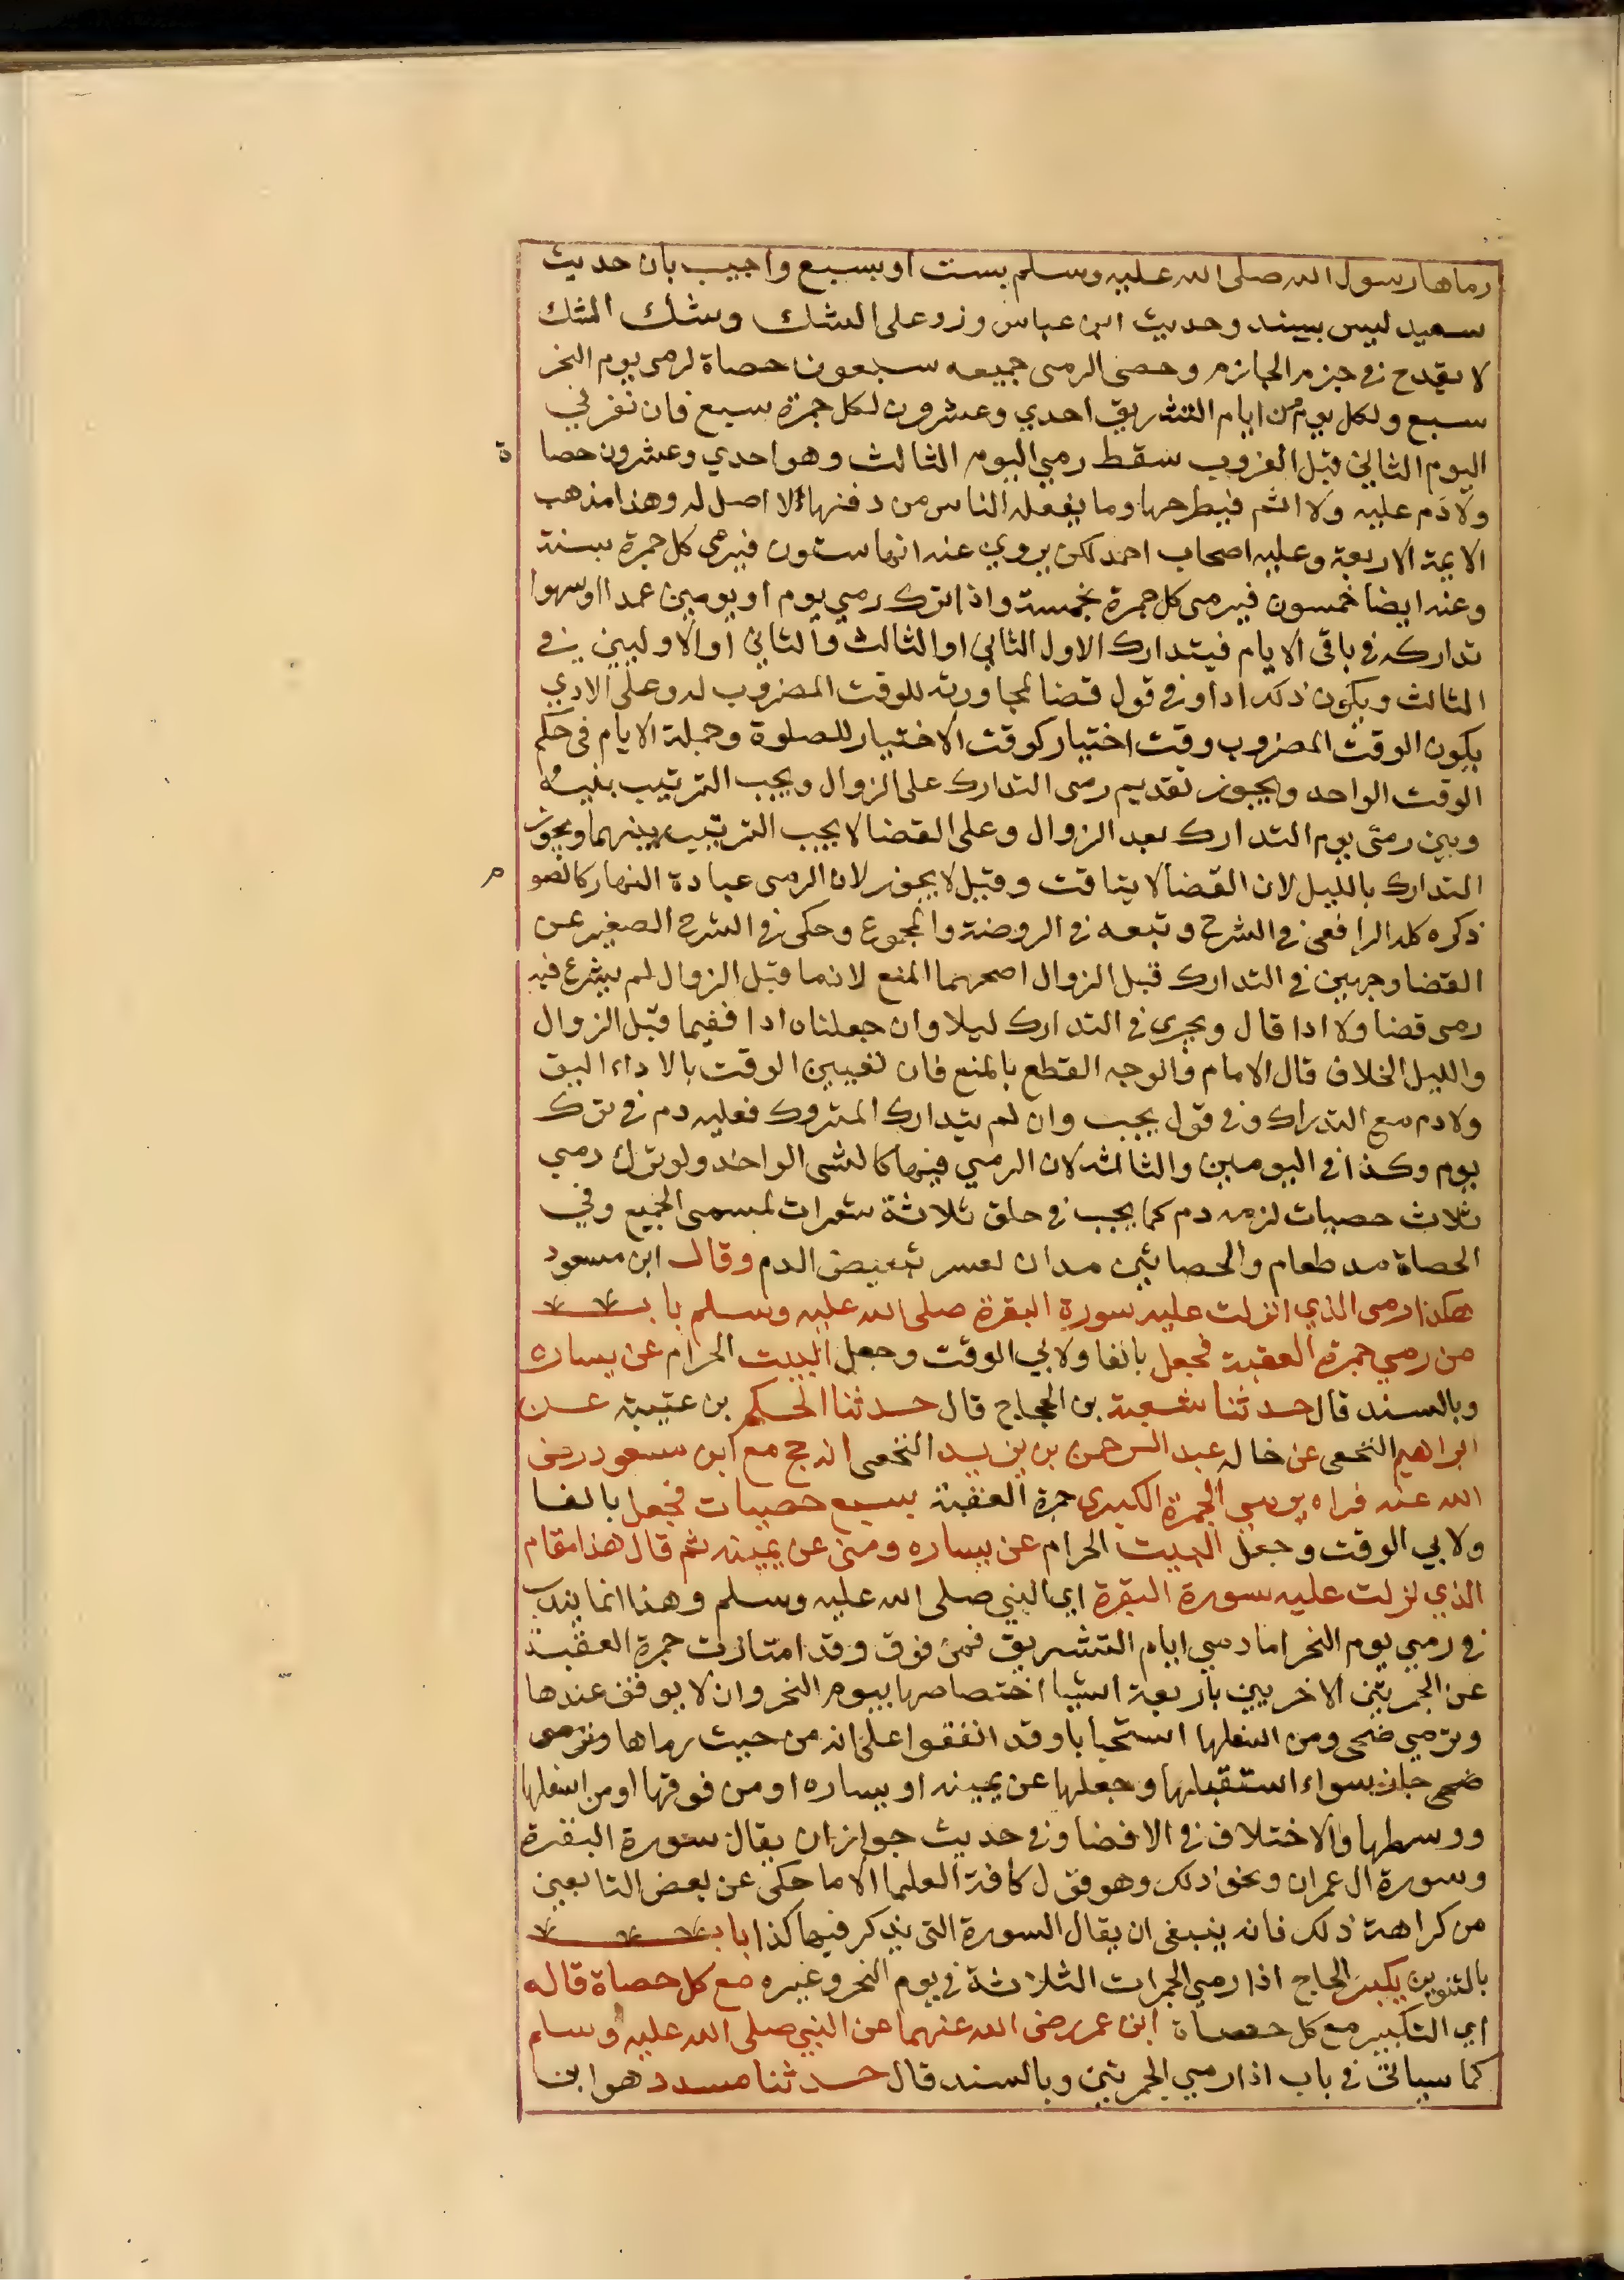 رماها رسول الله صلى الله عليه وسلم بست او بسبع واجيب بان حديث
سعيد ليس بمسند وحديث ابن عباس ورد على الشك وشك الشاك
لا يقدح في جزم الجازم وحصى الرمى جميعه سبعون حصاة لرمى يوم النحر
سبع ولكل يوم من ايام التشريق احدي وعشرون لكل جمرة سبع فان نفر في
اليوم الثاني قبل الغروب سقط رمي اليوم الثالث وهو احدي وعشرون حصاة
ولا دم عليه ولا اثم فيطرحها وما يفعله الناس من دفنها لا اصل له وهذا مذهب
الايمة الاربعة وعليه اصحاب احمد لكن يروي عنه انها ستون فيرمي كل جمرة بستة
وعنه ايضا خمسون فيرمى كل جمرة بخمسة واذا ترك رمي يوم او يومين عمدا او سهوا
تداركه في باقى الايام فيتدارك الاول الثاني او الثالث والثاني او الاولين في
الثالث ويكون ذلك ادا وفي قول قضا لمجاورته للوقت المضروب له وعلى الادي
يكون الوقت المضروب وقت اختيار كوقت الاختيار للصلوة وجملة الايام في حكم
الوقت الواحد ويجوز تقديم رمى التدارك على الزوال ويجب الترتيب بينه
وبين رمى يوم التدارك بعد الزوال وعلى القضا لا يجب الترتيب بينهما ويجوز
التدارك بالليل لان القضا لا يتاقت وقيل لا يجوز لان الرمى عبادة النهار كالصوم
ذكره كله الرافعى في الشرح وتبعه في الروضة والمجموع وحكى في الشرح الصغير عن
القضا وجهين في التدارك قبل الزوال اصحهما المنع لان ما قبل الزوال لم يشرع فيه
رمى قضا ولا ادا قال ويجري في التدارك ليلا وان جعلناه ادا ففيما قبل الزوال
والليل الخلاف قال الامام والوجه القطع بالمنع فان تعيين الوقت بالاداء اليق
ولا دم مع التدراك وفي قول يجب وان لم يتدارك المتروك فعليه دم في ترك
يوم وكذا في اليومين والثالثه لان الرمي فيها كالشى الواحد ولو ترك رمي
ثلاث حصيات لزمه دم كما يجب في حلق ثلاثة شعرات لمسمى الجميع وفي
الحصاة مد طعام والحصاتين مدان لعسر تبعيض الدم وقال ابن مسعود
هكذا رمى الذي انزلت عليه سورة البقرة صلى الله عليه وسلم باب
من رمي جمرة العقبة فجعل بالفا ولابي الوقت وجعل البيت الحرام عن يساره
وبالسند قال حدثنا شعبة بن الحجاج قال حدثنا الحكم بن عتيبة عن
ابراهيم النخعى عن خاله عبد الرحمن بن يزيد النخعى انه حج مع ابن مسعود رضى
الله عنه فراه يرمي الجمرة الكبرى جمرة العقبة بسبع حصيات فجعل بالفا
ولابي الوقت وجعل البيت الحرام عن يساره ومنى عن يمينه ثم قال هذا مقام
الذي نزلت عليه سورة البقرة اي النبي صلى الله عليه وسلم وهذا انما يندب
في رمي يوم النحر اما رمي ايام التشريق فمن فوق وقد امتازت جمرة العقبة
عن الجمرتين الاخريين باربعة اشيا اختصاصها بيوم النحر وان لا يوقف عندها
وترمي ضحى ومن اسفلها استحبابا وقد اتفقوا على انه من حيث رماها وترمى
ضحى جاز سواء استقبلها وجعلها عن يمينه او يساره او من فوقها او من اسفلها
ووسطها والاختلاف في الافضا وفي حديث جواز ان يقال سورة البقرة
وسورة ال عمران ونحو ذلك وهو قول كافة العلما الا ما حكى عن بعض التابعين
من كراهة ذلك فانه ينبغى ان يقال السورة التى يذكر فيها كذا باب
بالتنوين يكبر الحاج اذا رمي الجمرات الثلاثة في يوم النحر وغيره مع كل حصاة قاله
اي التكبير مع كل حصاة ابن عمر رضى الله عنهما عن النبي صلى الله عليه وسلم
كما سياتى في باب اذا رمي الجمرتين وبالسند قال حدثنا مسدد هو ابن